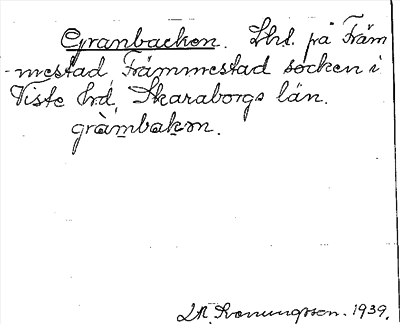 Granbacken. Lht. på Främ
-mestad, Främmestad socken i
Viste hrd, Skaraborgs län.
gràmbakən.
1939.